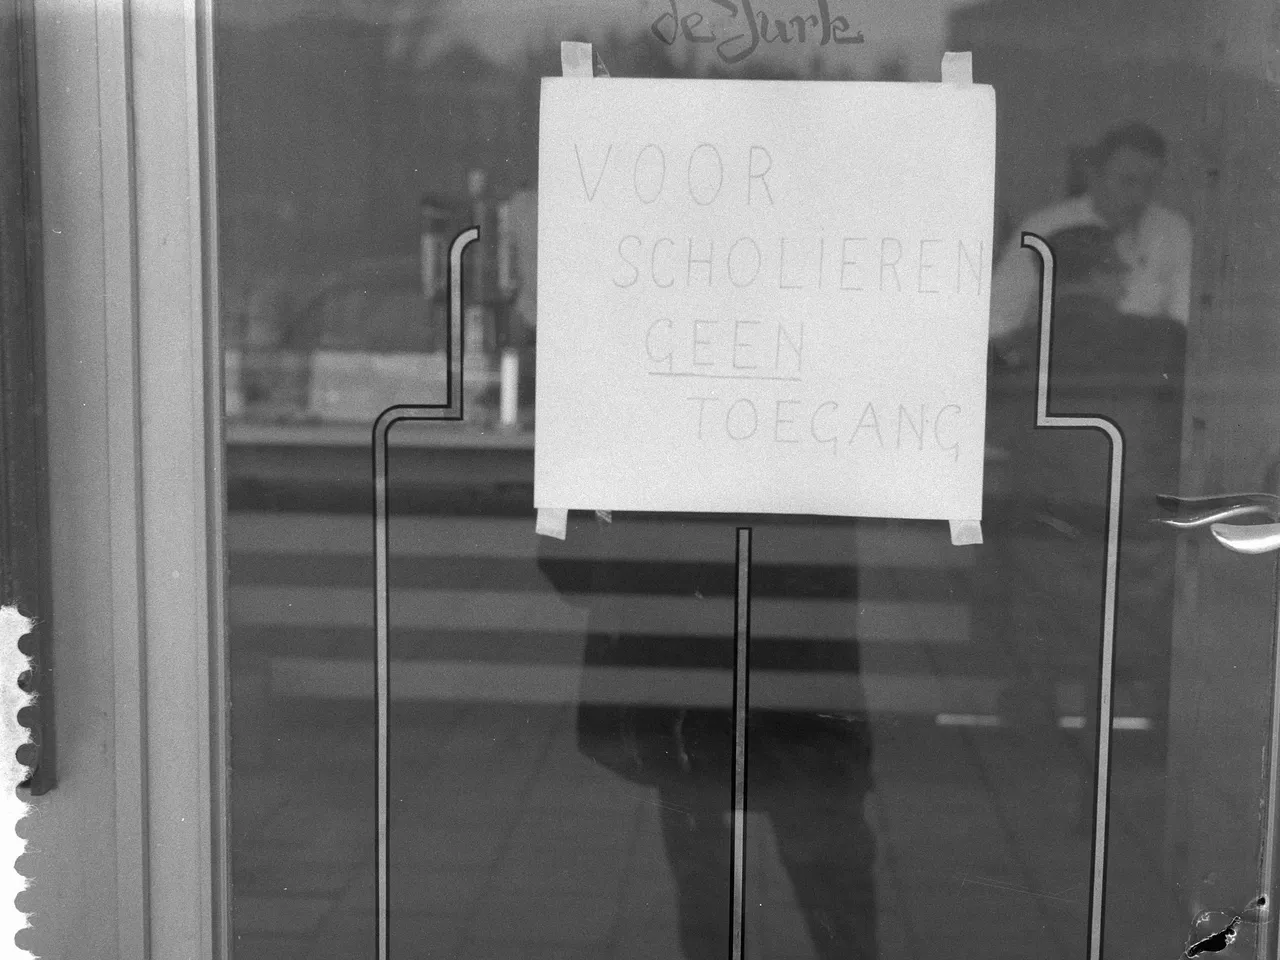 de Jurk
VOOR
SCHOLIEREN
GEEN
TOEGANG